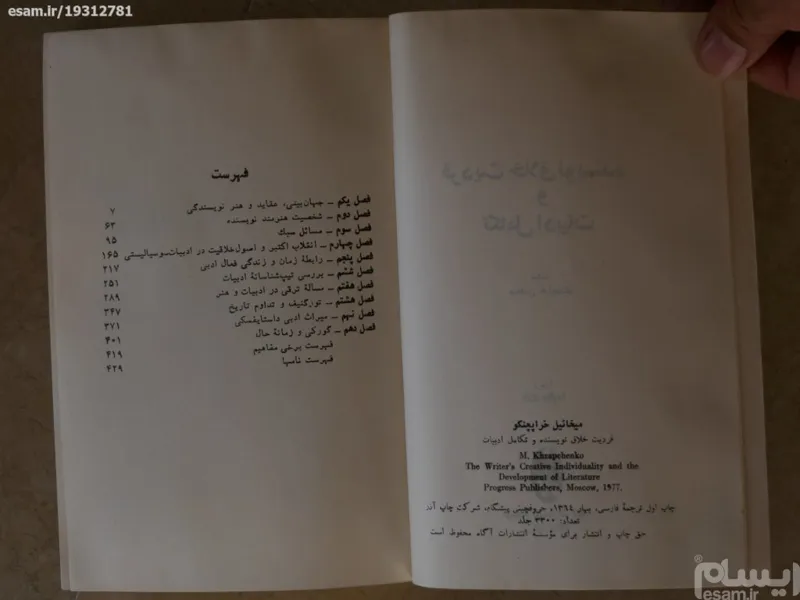 esam.ir/19312781
فهرست
فصل یکم ــ جهان‌بینی، عقاید و هنر نویسندگی ۷
فصل دوم ــ شخصیت هنرمند نویسنده ۶۳
فصل سوم ــ مسائل سبک ۹۵
فصل چهارم ــ انقلاب اکتبر و اصول خلاقیت در ادبیات سوسیالیستی ۱۶۵
فصل پنجم ــ رابطهٔ زمان و زندگی فعال ادبی ۲۱۷
فصل ششم ــ بررسی تیپ‌شناسانهٔ ادبیات ۲۵۱
فصل هفتم ــ مسألهٔ ترقی در ادبیات و هنر ۲۸۹
فصل هشتم ــ تورگنیف و تداوم تاریخ ۳۴۷
فصل نهم ــ میراث ادبی داستایفسکی ۳۷۱
فصل دهم ــ گورکی و زمانهٔ حال ۴۰۱
فهرست برخی مفاهیم ۴۱۹
فهرست نامها ۴۲۹
میخائیل خراپچنکو
فردیت خلاق نویسنده و تکامل ادبیات
M. Khrapchenko
The Writer's Creative Individuality and the
Development of Literature
Progress Publishers, Moscow, 1977.
چاپ اول ترجمهٔ فارسی، بهار ۱۳۶۴، حروفچینی پیشگام، شرکت چاپ آذر
تعداد: ۳۳۰۰ جلد
حق چاپ و انتشار برای مؤسسهٔ انتشارات آگاه محفوظ است
ایسام
esam.ir